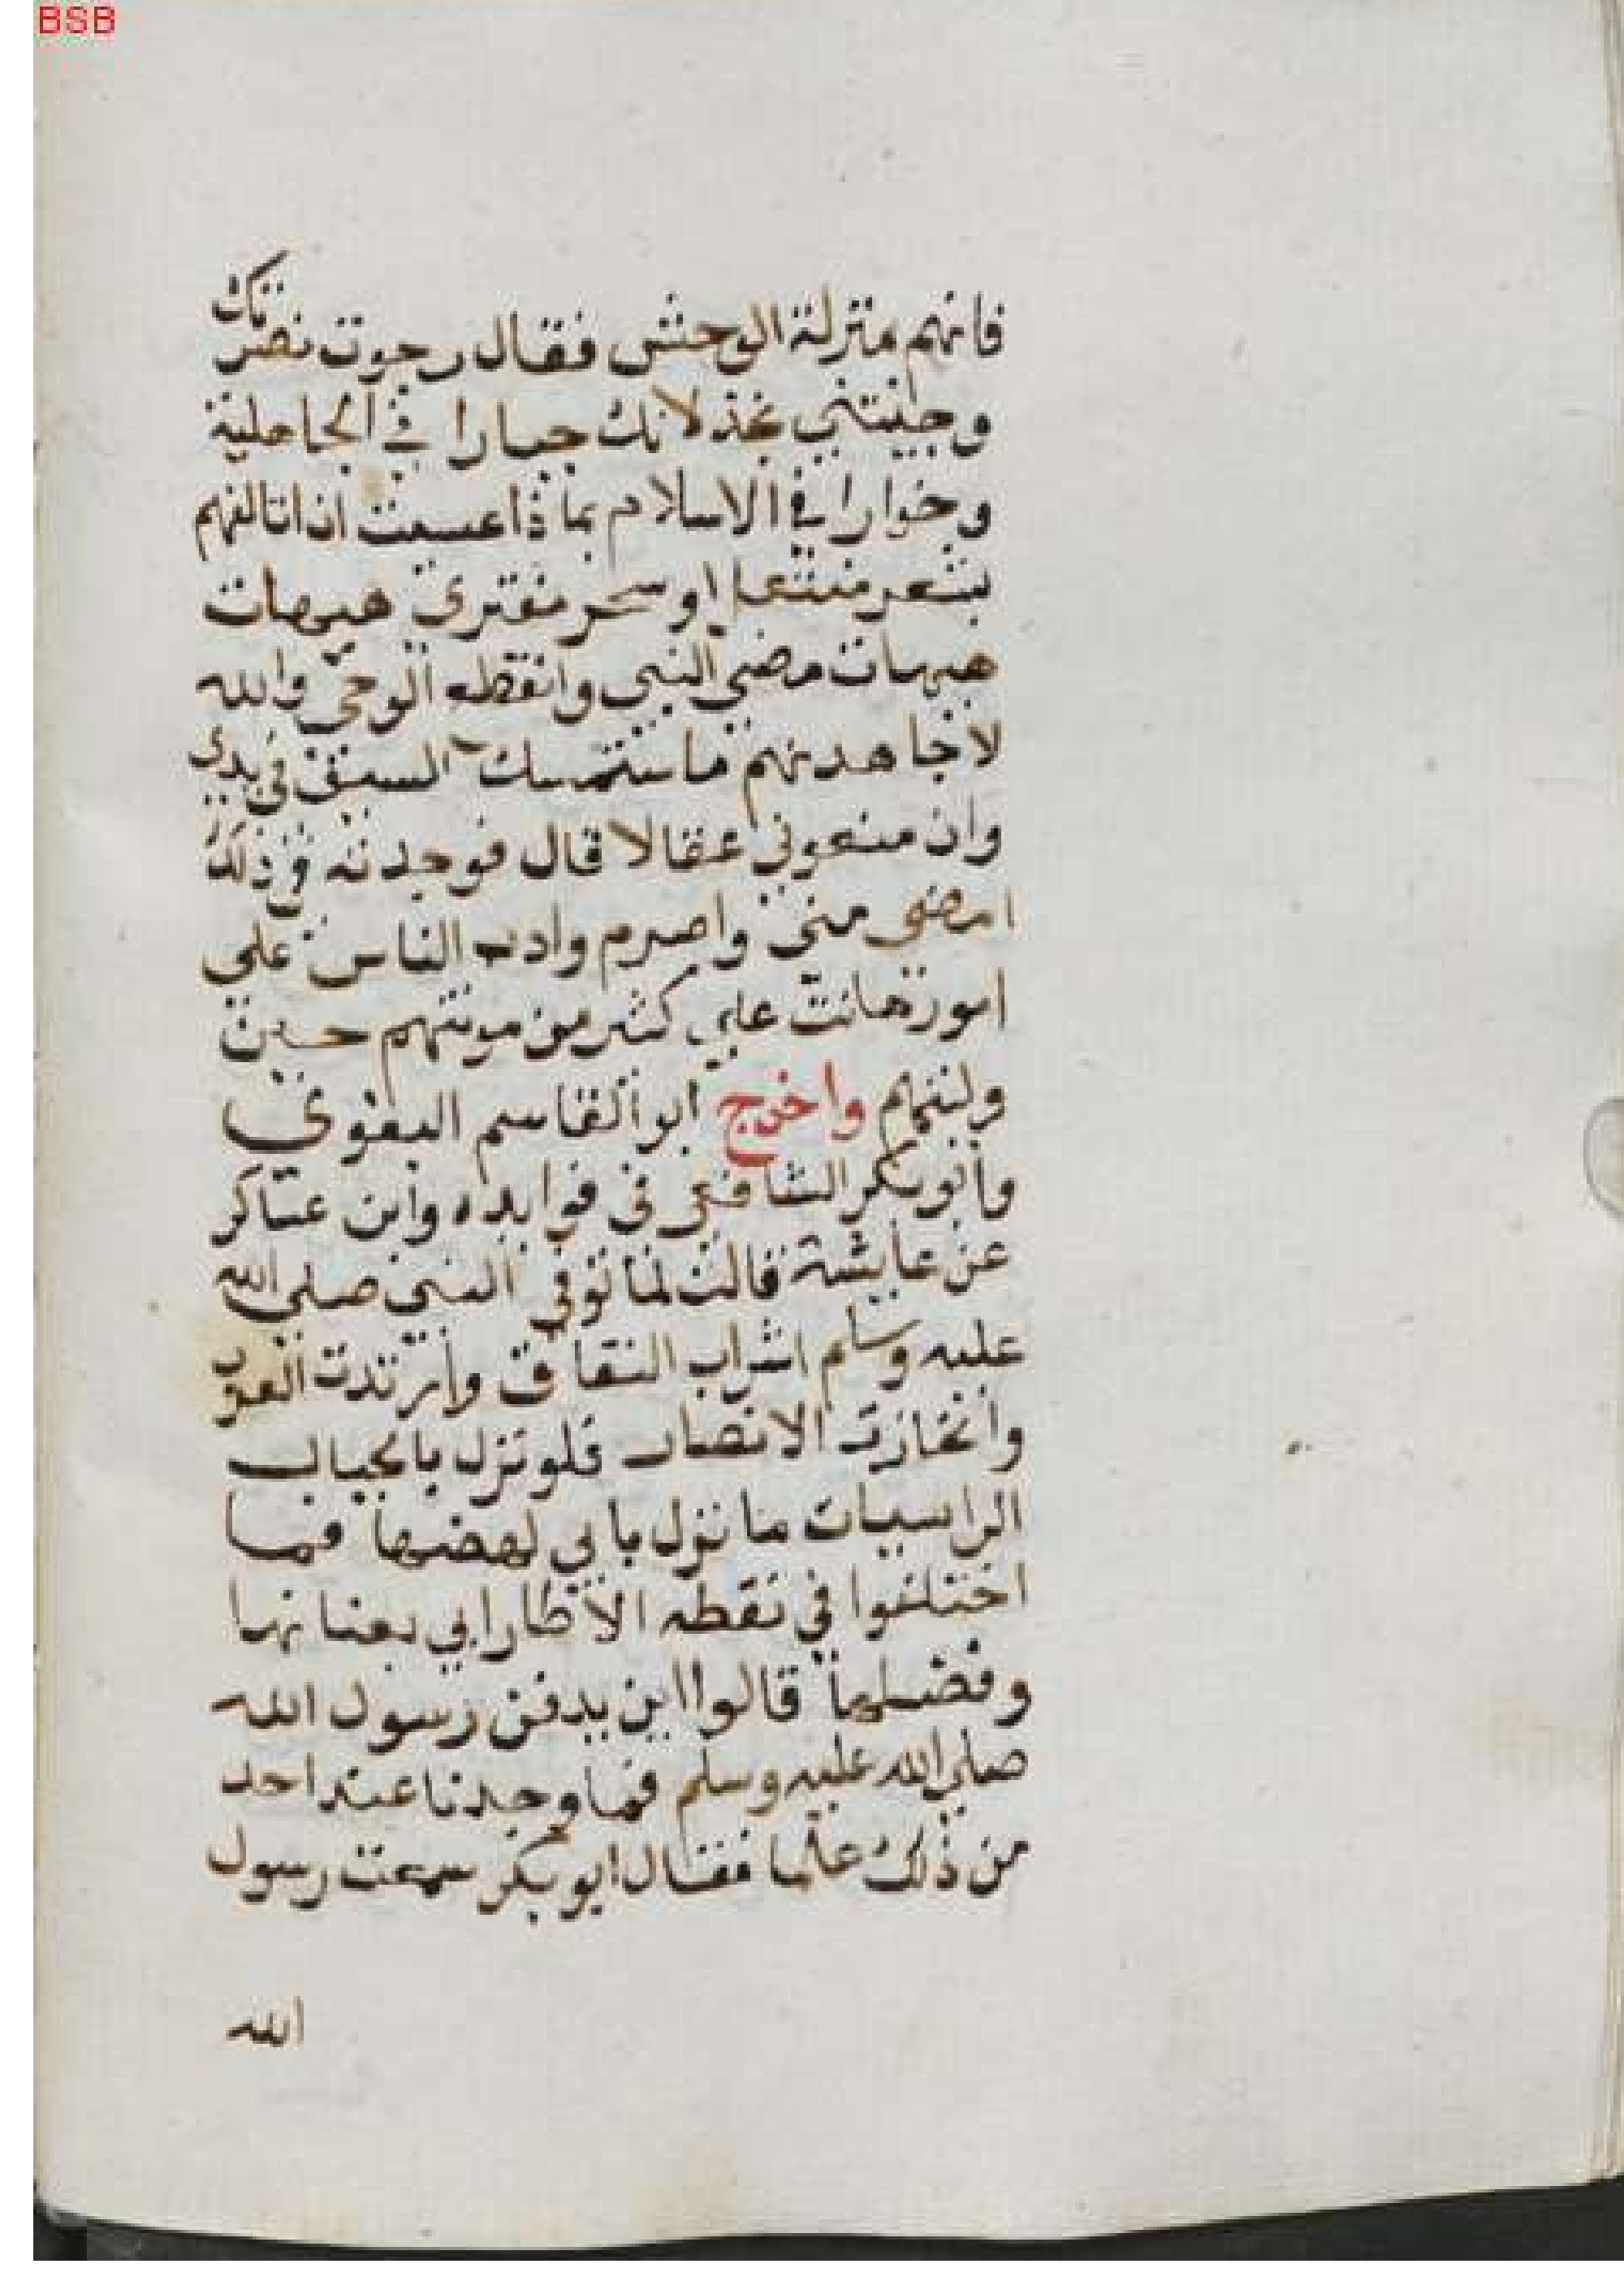 BSB
فانهم منزلة الوحش فقال رجوت نصرتك
وجيتني بخذلانك جبارا في الجاهلية
وخوارا في الاسلام بما ذا عسيت ان اتالفهم
بشعر مفتعل او سحر مفترى هيهات
هيهات مضي النبي وانقطع الوحي والله
لاجاهدنهم ما ستمسك السيف في يدي
وان منعوني عقالا قال فوجدته في ذلك
امضي مني واصرم وادب الناس على
امور هانت علي كثير من مونتهم حين
وليتهم واخرج ابو القاسم البغوي
وابو بكر الشافعي في فوايده وابن عساكر
عن عايشة قالت لما توفي النبي صلي الله
عليه وسلم اشراب النفاق وارتدت العرب
وانحازت الانصار فلو نزل بالجبال
الراسيات ما نزل بابي لهضها فما
اختلفوا في نقطه الاطار ابي بعنانها
وفضلها قالوا اين يدفن رسول الله
صلي الله عليه وسلم فما وجدنا عند احد
من ذلك علما فقال ابو بكر سمعت رسول
الله